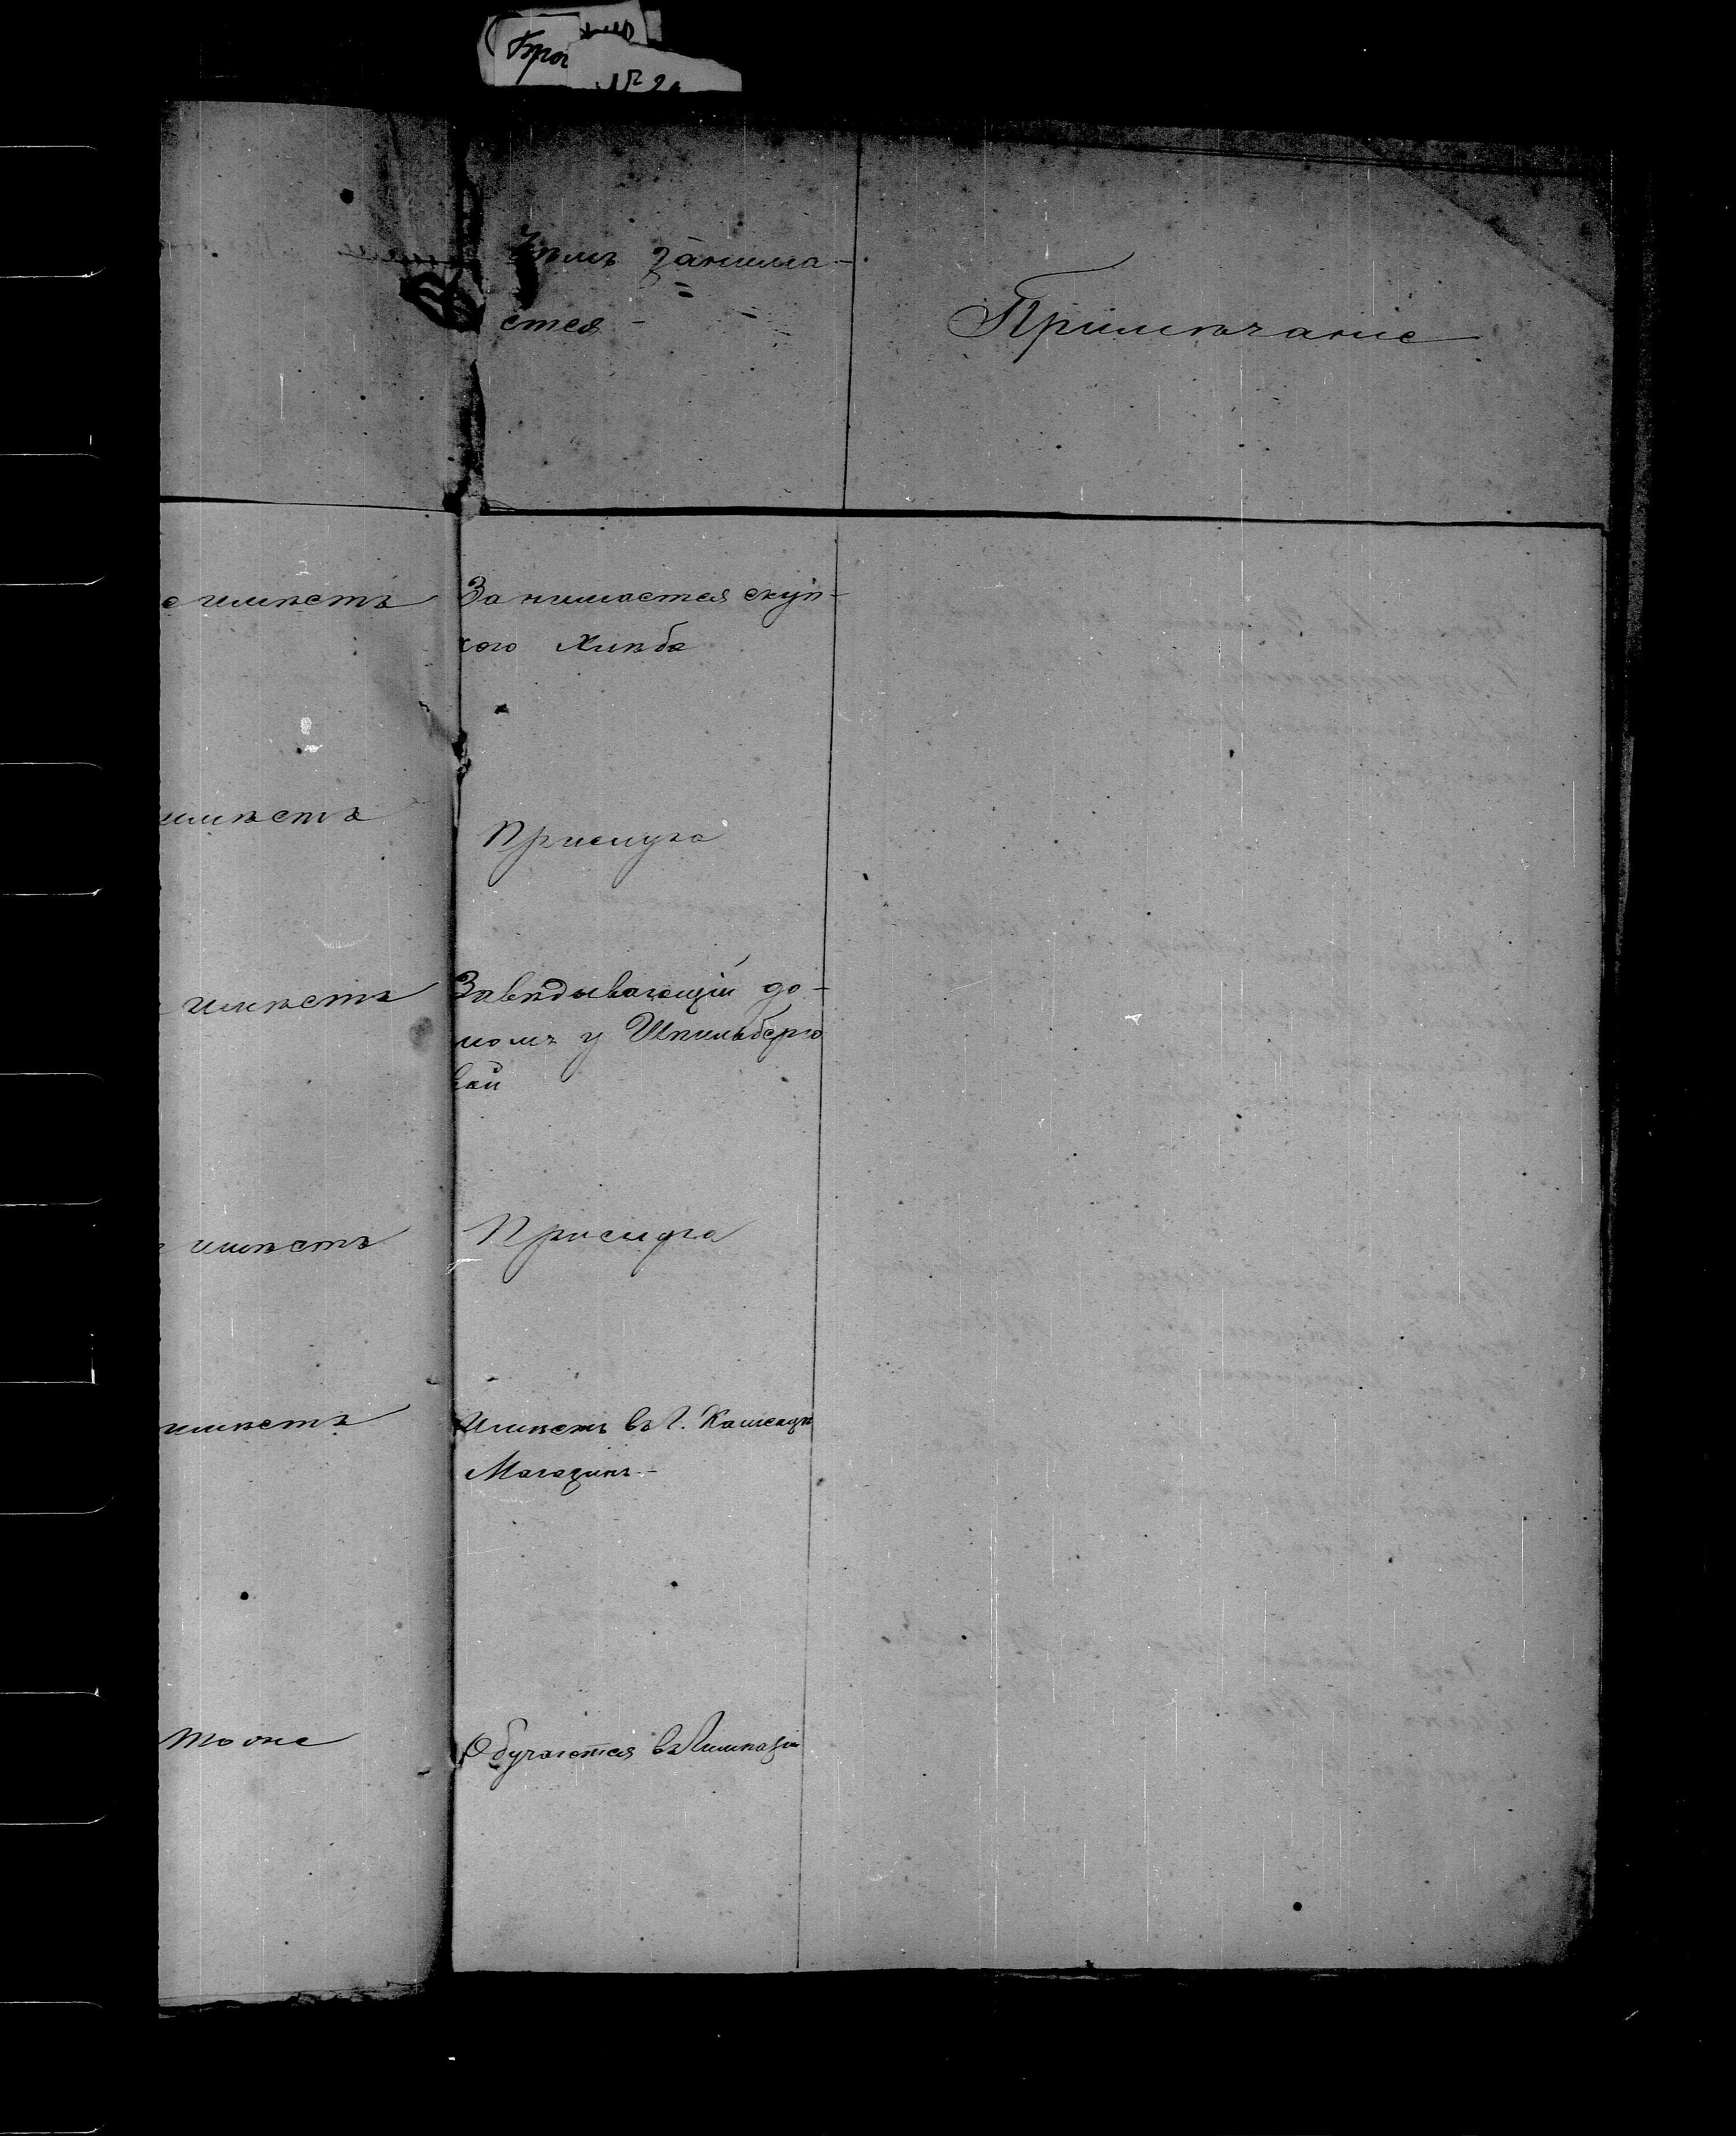 № 2
Чѣмъ занима-
ется -
Примѣчаніе
е имѣетъ
Занимается скуп-
кою хлѣба
имѣетъ
Прислуга
имѣетъ
Завѣдывающій до-
момъ у Шпильберго
вай
имѣетъ
Прислуга
имѣетъ
Имѣетъ въ Г. Каменцѣ
Магазинъ -
Тоже
Обучаются въ Гимназіи